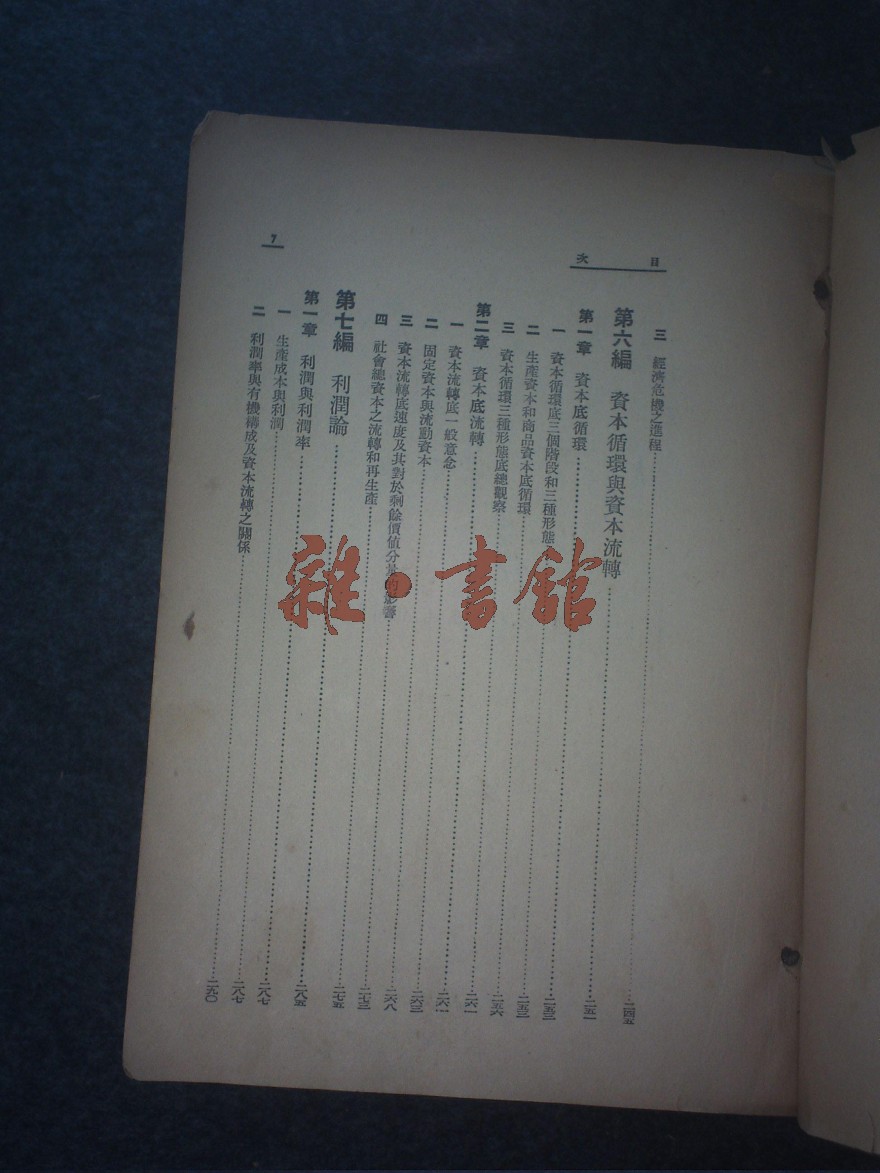 目次
7
三 經濟危機之進程……二四五
第六編 資本循環與資本流轉……二五一
第一章 資本底循環……二五三
一 資本循環底三個階段和三種形態……二五三
二 生產資本和商品資本底循環……二五六
三 資本循環三種形態底總觀察……二六一
第二章 資本底流轉……二六一
一 資本流轉底一般意念……二六三
二 固定資本與流動資本……二六八
三 資本流轉底速度及其對於剩餘價值分量的影響……二七三
四 社會總資本之流轉和再生產……二七五
第七編 利潤論……二八五
第一章 利潤與利潤率……二八七
一 生產成本與利潤……二八七
二 利潤率與有機構成及資本流轉之關係……二九〇
雜·書館